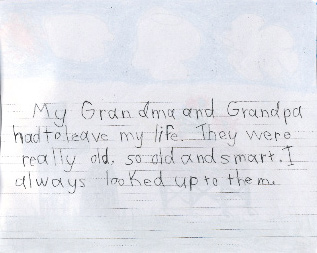 My Grandma and Grandpa
had to leave my life. They were
really old, so old and smart. I
always looked up to them.